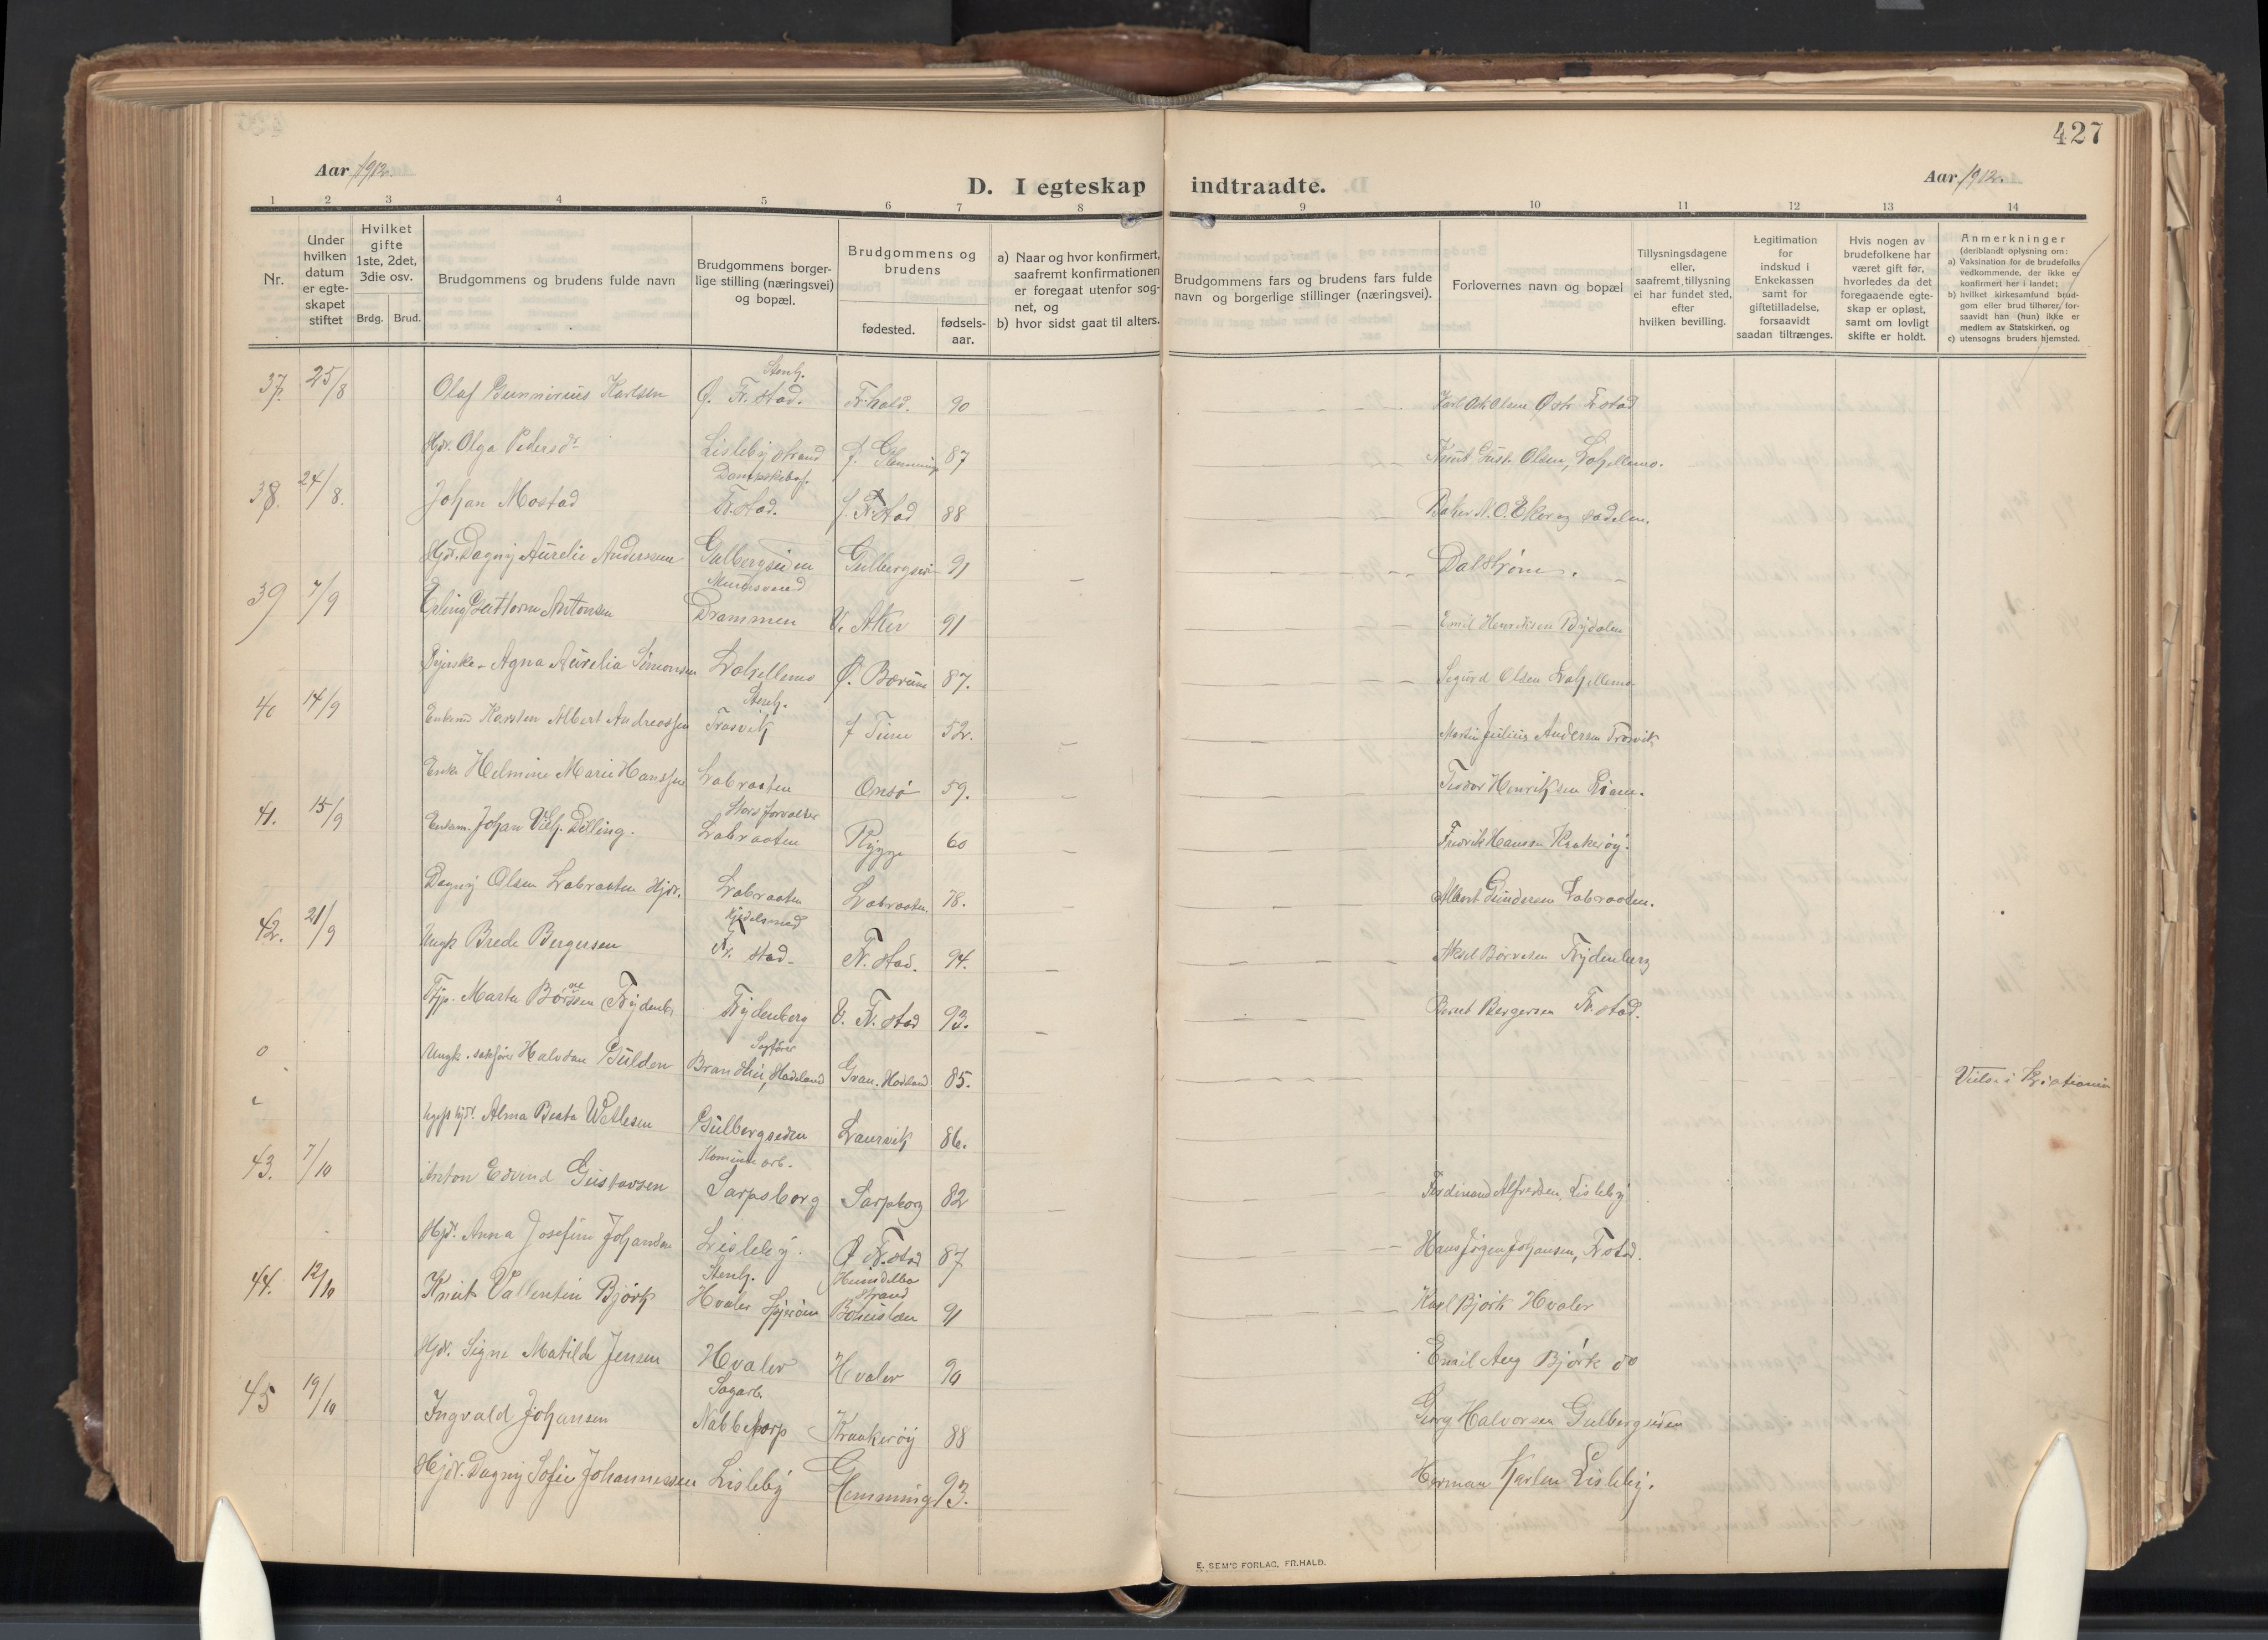 427
Aar 1912.
D. I egteskap indtraadte.
Aar 1912.
1 2 3 4 5 6 7 8 9 10 11 12 13 14
Nr.
Under hvilken datum er egteskapet stiftet
Hvilket gifte 1ste, 2det, 3die osv.
Brdg. Brud.
Brudgommens og brudens fulde navn
Brudgommens borgerlige stilling (næringsvei) og bopæl.
Brudgommens og brudens
fødested.
fødselsaar.
a) Naar og hvor konfirmert, saafremt konfirmationen er foregaat utenfor sognet, og
b) hvor sidst gaat til alters.
Brudgommens fars og brudens fars fulde navn og borgerlige stillinger (næringsvei).
Forlovernes navn og bopæl
Tillysningsdagene eller, saafremt tillysning ei har fundet sted, efter hvilken bevilling.
Legitimation for indskud i Enkekassen samt for giftetilladelse, forsaavidt saadan tiltrænges.
Hvis nogen av brudefolkene har været gift før, hvorledes da det foregaaende egteskap er opløst, samt om lovligt skifte er holdt.
Anmerkninger
(deriblandt oplysning om:
a) Vaksination for de brudefolks vedkommende, der ikke er konfirmert her i landet;
b) hvilket kirkesamfund brudgom eller brud tilhører, forsaavidt han (hun) ikke er medlem av Statskirken, og
c) utensogns bruders hjemsted.
Stenh.
37. 25/8 Olaf Gunnerius Karlsen Ø. Fr.stad. Fr.hald. 90 Karl Ødr Olsen Østr Frstad
Hjdr. Olga Pedersdr Lisleby strand f. Glemminge 87 Knut Gust. Olsen, Lahellemo.
38. 24/8. Johan Mostad Fr.stad. f. Fr.stad 88
Hjdr. Dagny Aurelie Anderssen Gulbergsiden Gulbergsei 91 Dalstrøm.
39 7/9 Erling Guttorm Antonsen Drammen V. Aker 91 Emil Henriksen Rydalen
Agna Aurelia Simonsen Lahellemo Ø. Bærum 87. Sigurd Olsen Lahellemo
Stenh.
40 14/9 Enkemd Karsten Albert Andreassen Trosvik f Tune 52. Martin Julius Andersen Trosvik
Enke Helmine Marie Hanssen Labraaten Onsø 59. Teodor Henriksen
41. 15/9 Enkem. Johan Vilh. Dilling. Labraaten Rygge 60 Fredrik Hansen Kraakerøy.
Dagny Olsen Labraaten Hjdr. Labraaten Labraaten. 78. Albert Gundersen Labraaten.
Kjedelsmed
42. 21/9 Ungk Brede Bergersen Fr. stad. Fr. stad. 94. Aksel Børresen Frydenberg
Marta Børresen Frydenb. Frydenberg V. Fr. stad 93. Bernt Bergersen Fr. stad.
Sagfører
0 Ungk. sakfører Halvdan Gulden Brandbu, Hadeland Gran. Hadeland 85. Vielse i Kristiania
Alma Beata Wetlesen Gulbergsiden Laurvik 86.
43. 7/10 Anton Edvind Gustavsen Sarpsborg Sarpsborg 82 Ferdinand Alfredsen, Lisleby
Hjdr. Anna Josefine Johansen Lisleby. Ø Fr.stad 87 Hans Jørgen Johansen, Frstad.
Stenh.
44. 12/10 Knut Vallentin Bjørk Hvaler Bohuslæn 91 Karl Bjørk Hvaler
Hjdr. Signe Matilde Jensen Hvaler Hvaler 90 Emil Aug Bjørk do
Sagarb.
45 19/10 Ingvald Johansen Nabbetorp Kraakerøy 88 Georg Halvorsen Gulbergsiden
Hjdr. Dagny Sofie Johannessen Lisleby Glemminge 93. Herman Karlsen Lisleby.
E. SEM'S FORLAG, FR.HALD.